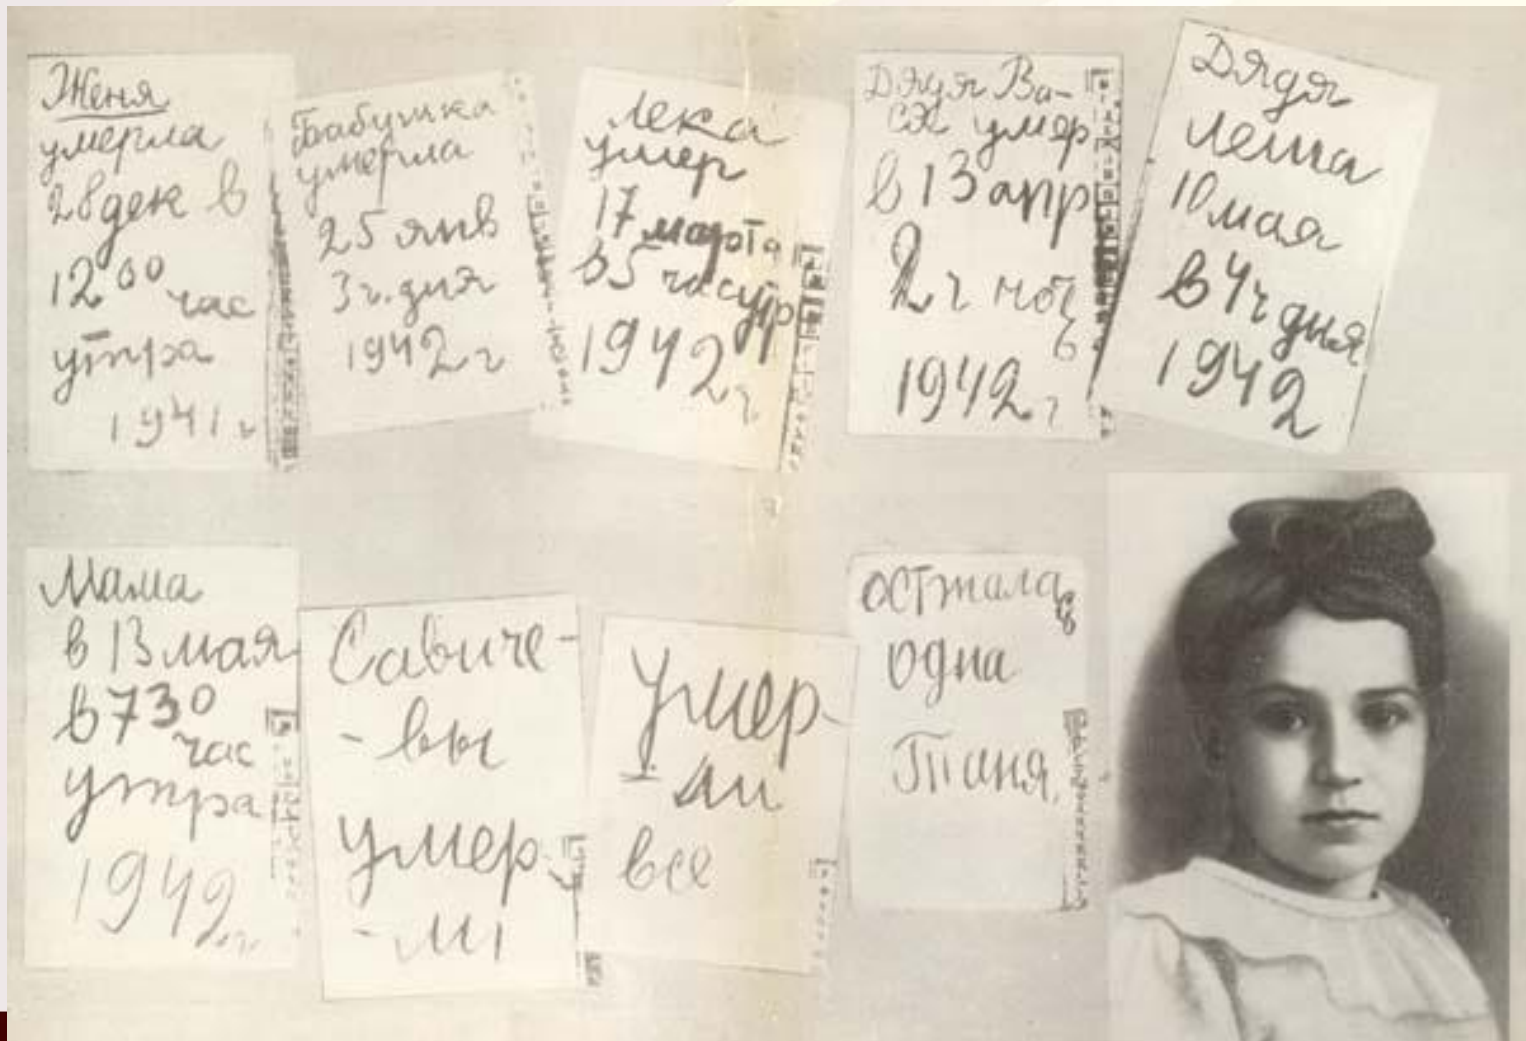 Женя
умерла
28 дек в
12⁰⁰ час
утра
1941 г
Бабушка
умерла
25 янв
3 ч. дня
1942 г
Лека
умер
17 марта
в 5 час утр
1942 г.
Дядя Ва-
ся умер
в 13 апр
2 ч ноч
ь
1942 г
Дядя
Леша
10 мая
в 4 ч дня
1942
Мама
в 13 мая
в 7 30
час
утра
1942 г.
Савиче-
-вы
умер
-ли
Умер-
-ли
все
Осталась
одна
Таня.